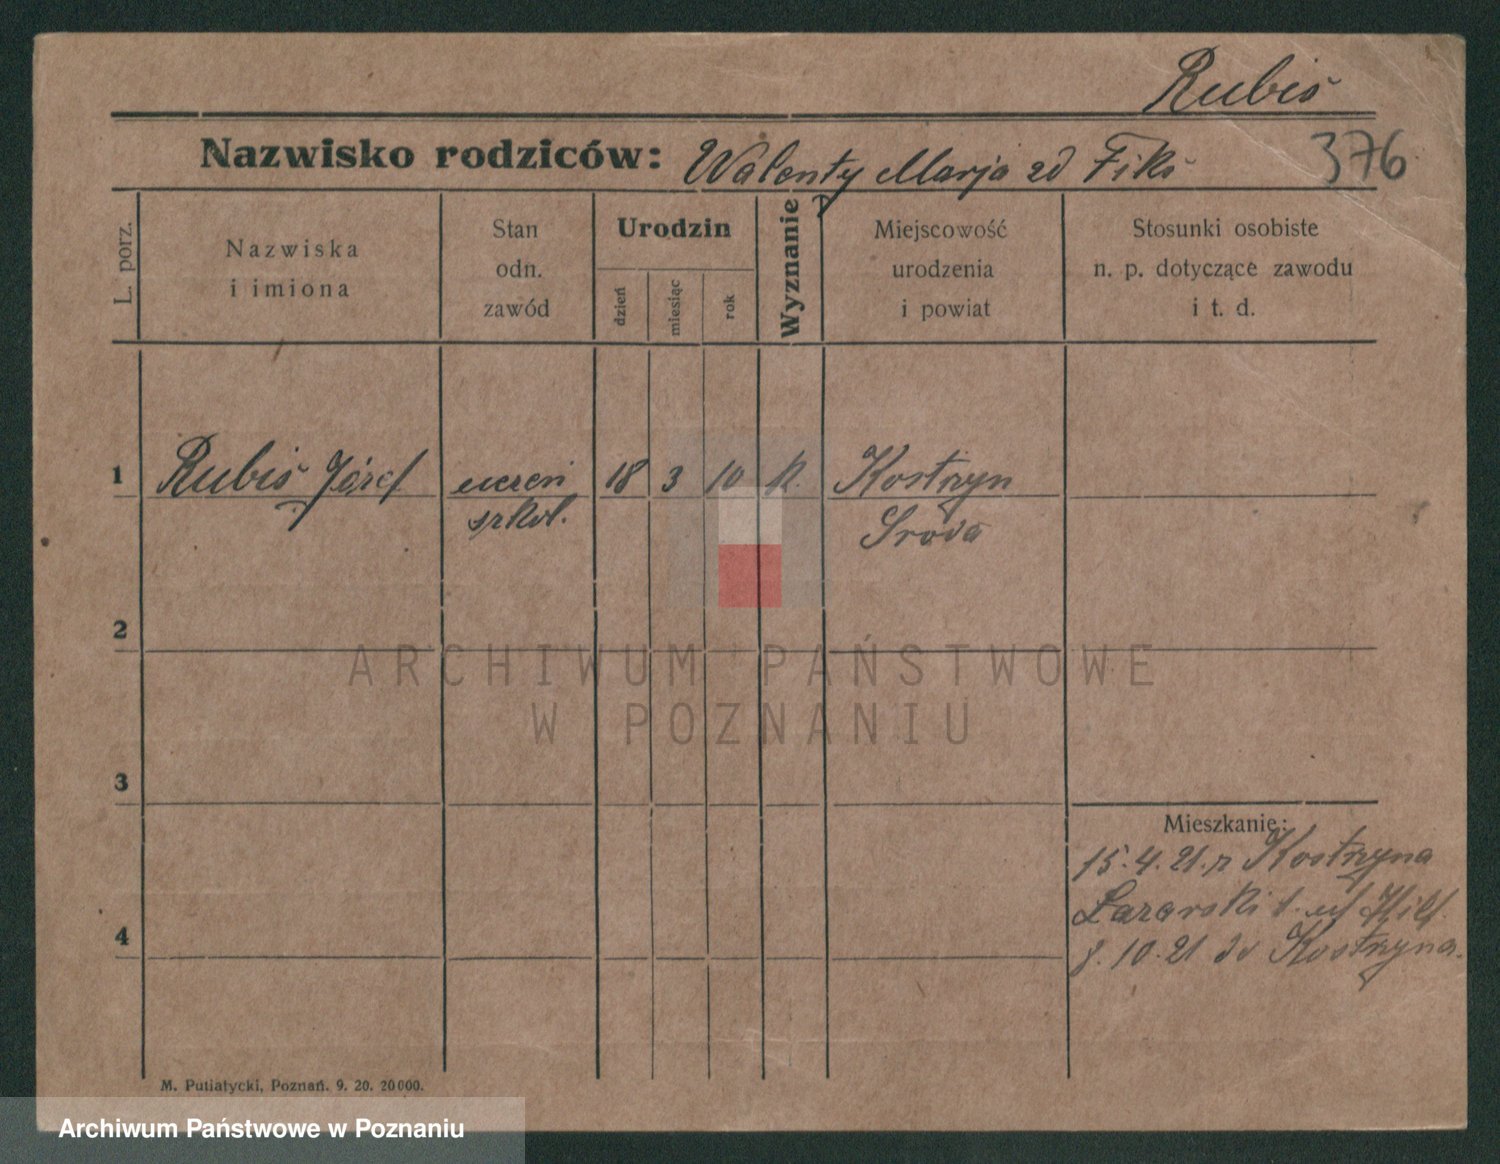 Rubiś
Nazwisko rodziców: Walenty Marja zd Fikś
376
L. porz.
Nazwiska
i imiona
Stan
odn.
zawód
Urodzin
dzień
miesiąc
rok
Wyznanie
Miejscowość
urodzenia
i powiat
Stosunki osobiste
n. p. dotyczące zawodu
i t. d.
1 Rubiś Józef uczeń 18 3 10 k. Kostrzyn
szkol. Sroda
2
ARCHIWUM PAŃSTWOWE
W POZNANIU
3
Mieszkanie:
15.4.21. z Kostrzyna
4
8.10.21 do Kostrzyna.
M. Putiatycki, Poznań. 9. 20. 20000.
Archiwum Państwowe w Poznaniu